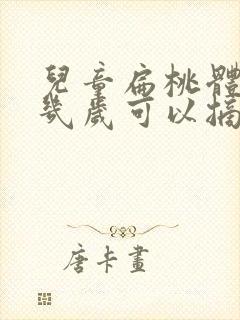 兒童扁桃體
幾歲可以摘
唐卡畫